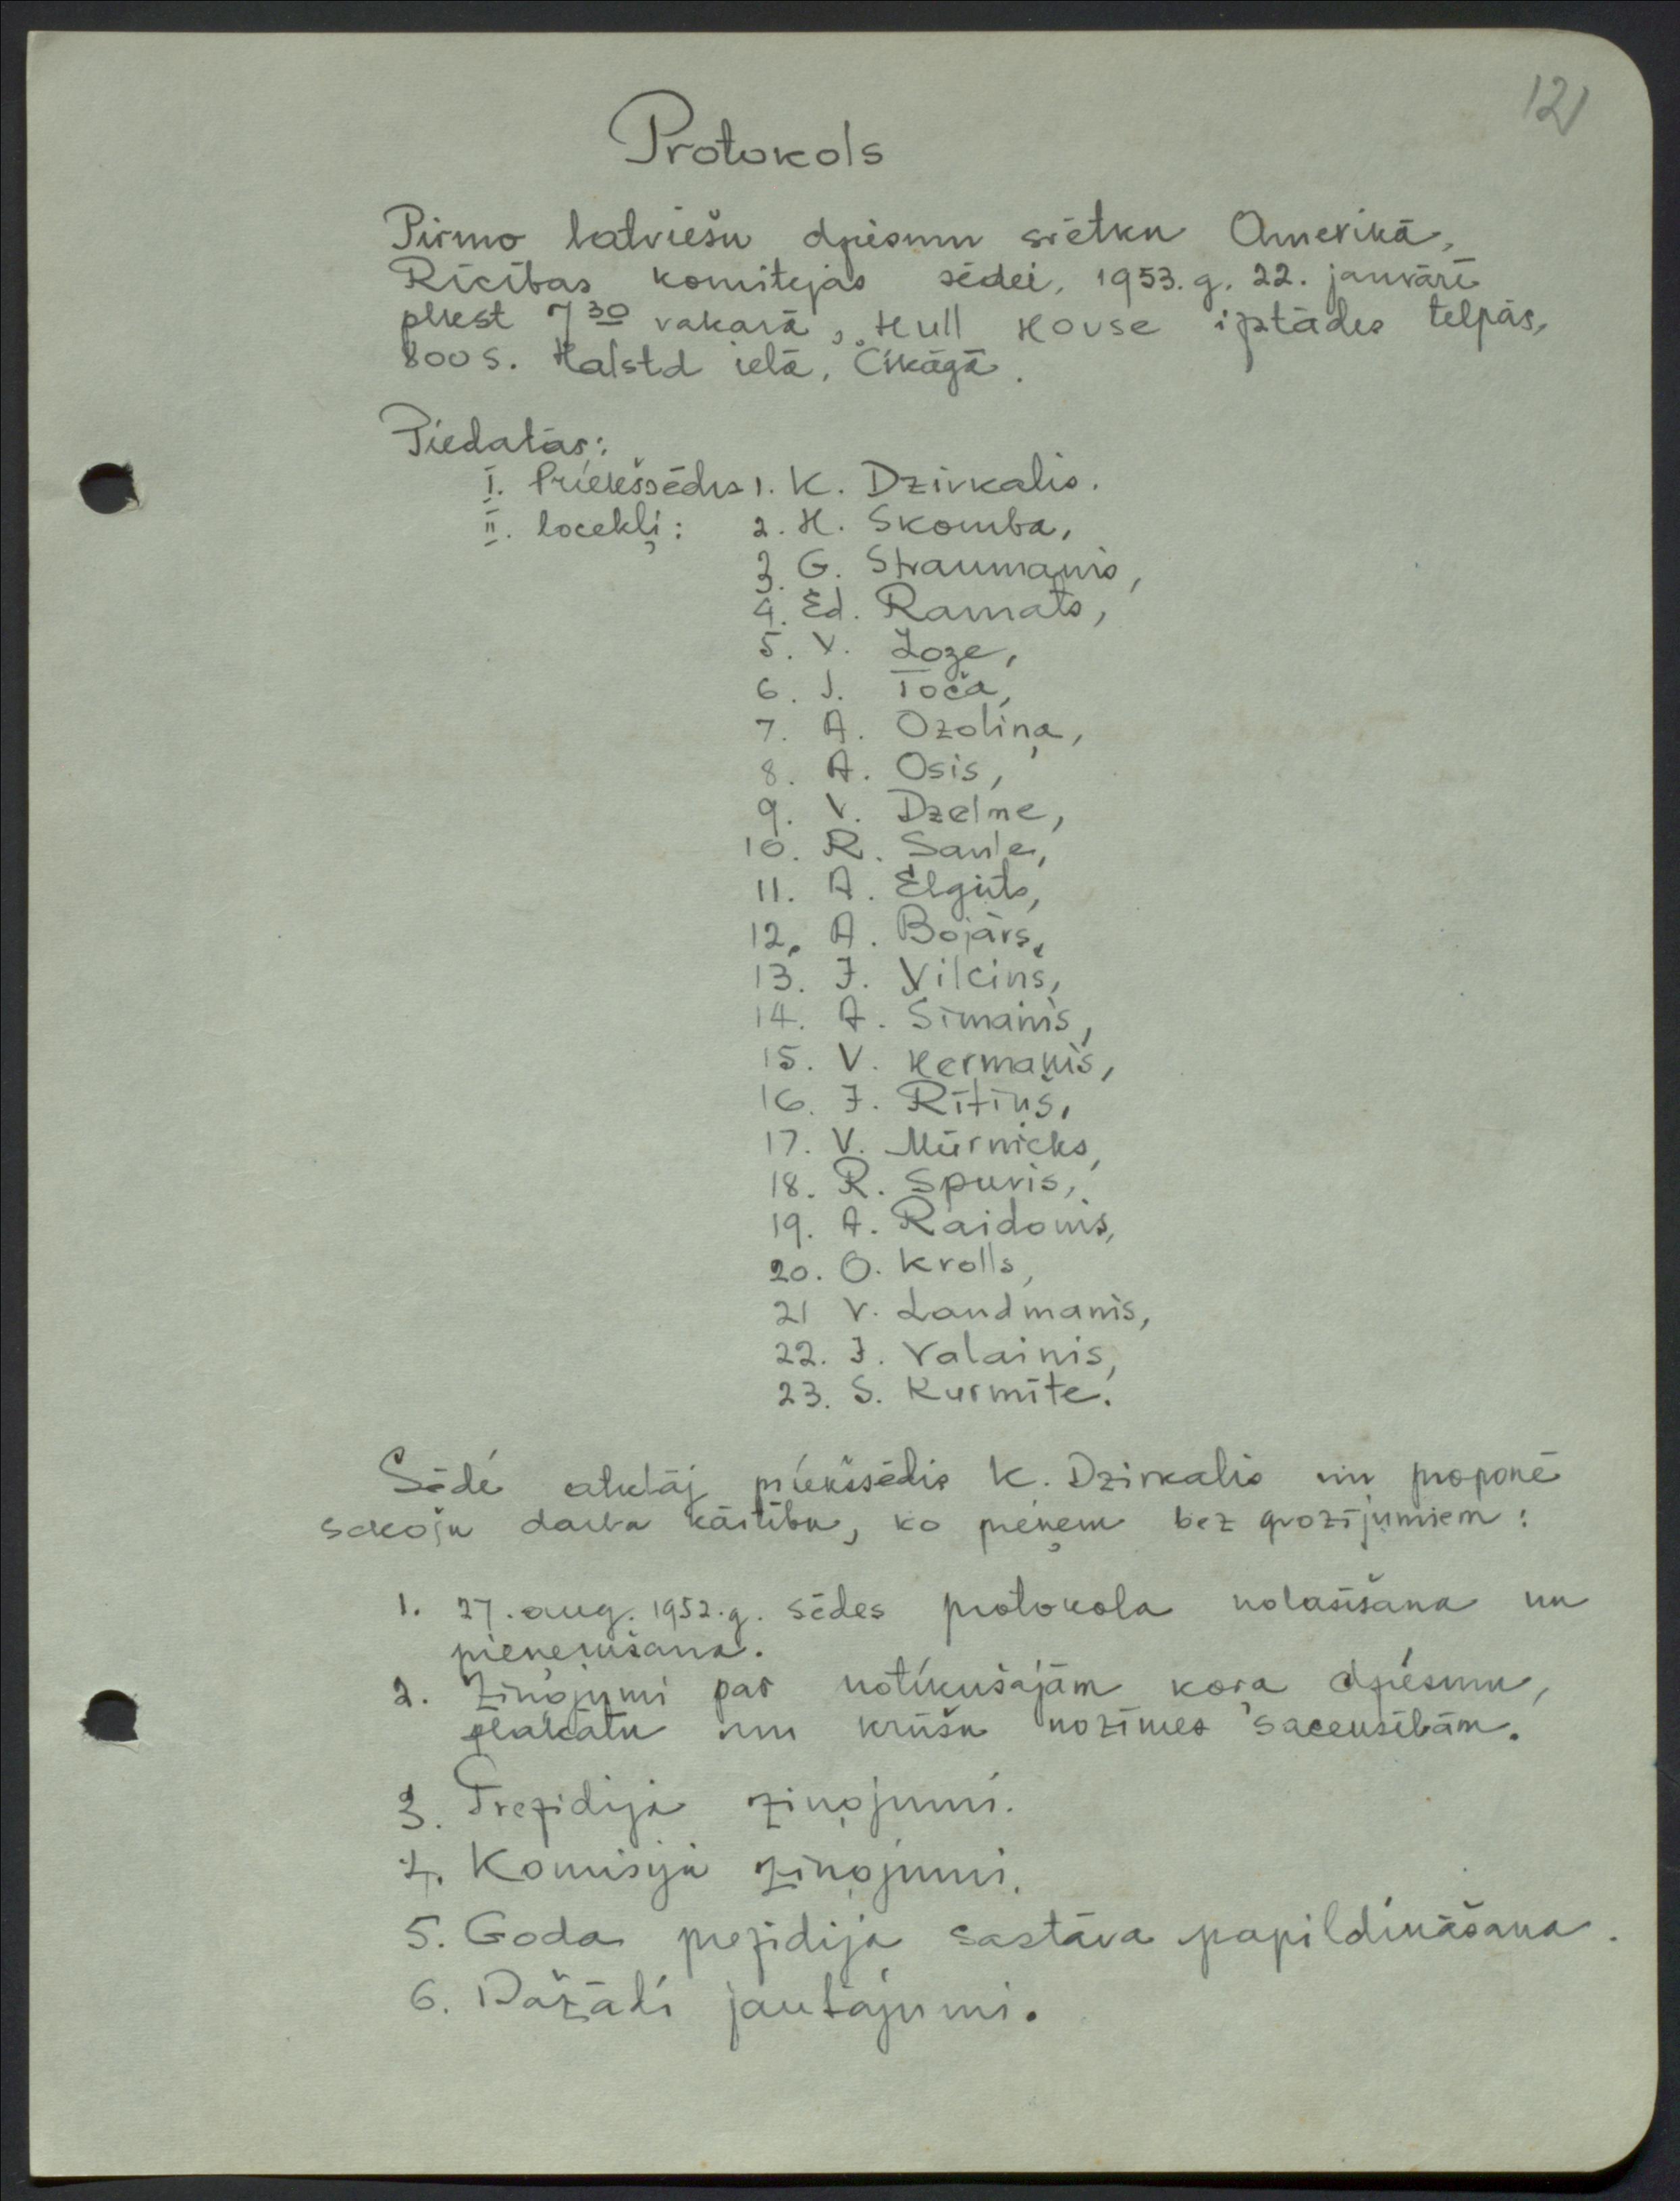 121
Protokols
Pirmo latviešu dziesmu svētku Amerikā,
Rīcības komitejas sēdei, 1953. g. 22. janvārī
plkst 7 30 vakarā, Hull House iztādes telpās,
800 S. Halstd ielā, Čikāgā.
Piedalās:
I. Priekšsēdis 1. K. Dzirkalis.
II. locekļi: 2. H. Skomba,
3. G. Straumanis,
4. Ed. Ramats,
5. V. Loze,
6. J. Toča,
7. A. Ozoliņa,
8. A. Osis,
9. V. Dzelme,
10. R. Saule,
11. A. Elguts,
12. A. Bojārs,
13. J. Vilciņš,
14. A. Sīmanis,
15. V. Hermanis,
16. J. Rītiņš,
17. V. Mūrnieks,
18. R. Spuris,
19. A. Raidonis,
20. O. Krolls,
21 V. Landmanis,
22. J. Valainis,
23. S. Kurmīte.
Sēdi atklāj priekšsēdis K. Dzirkalis un proponē
sekoju darba kārtību, ko pieņem bez grozījumiem:
1. 27. aug. 1952. g. sēdes protokola nolasīšana un
pieņemšana.
2. Ziņojumi par notikušajām kora dziesmu,
plakātu un krūšu nozīmes sacensībām.
3. Prezidija ziņojumi.
4. Komisiju ziņojumi.
5. Goda prezidija sastāva papildināšana.
6. Dažādi jautājumi.